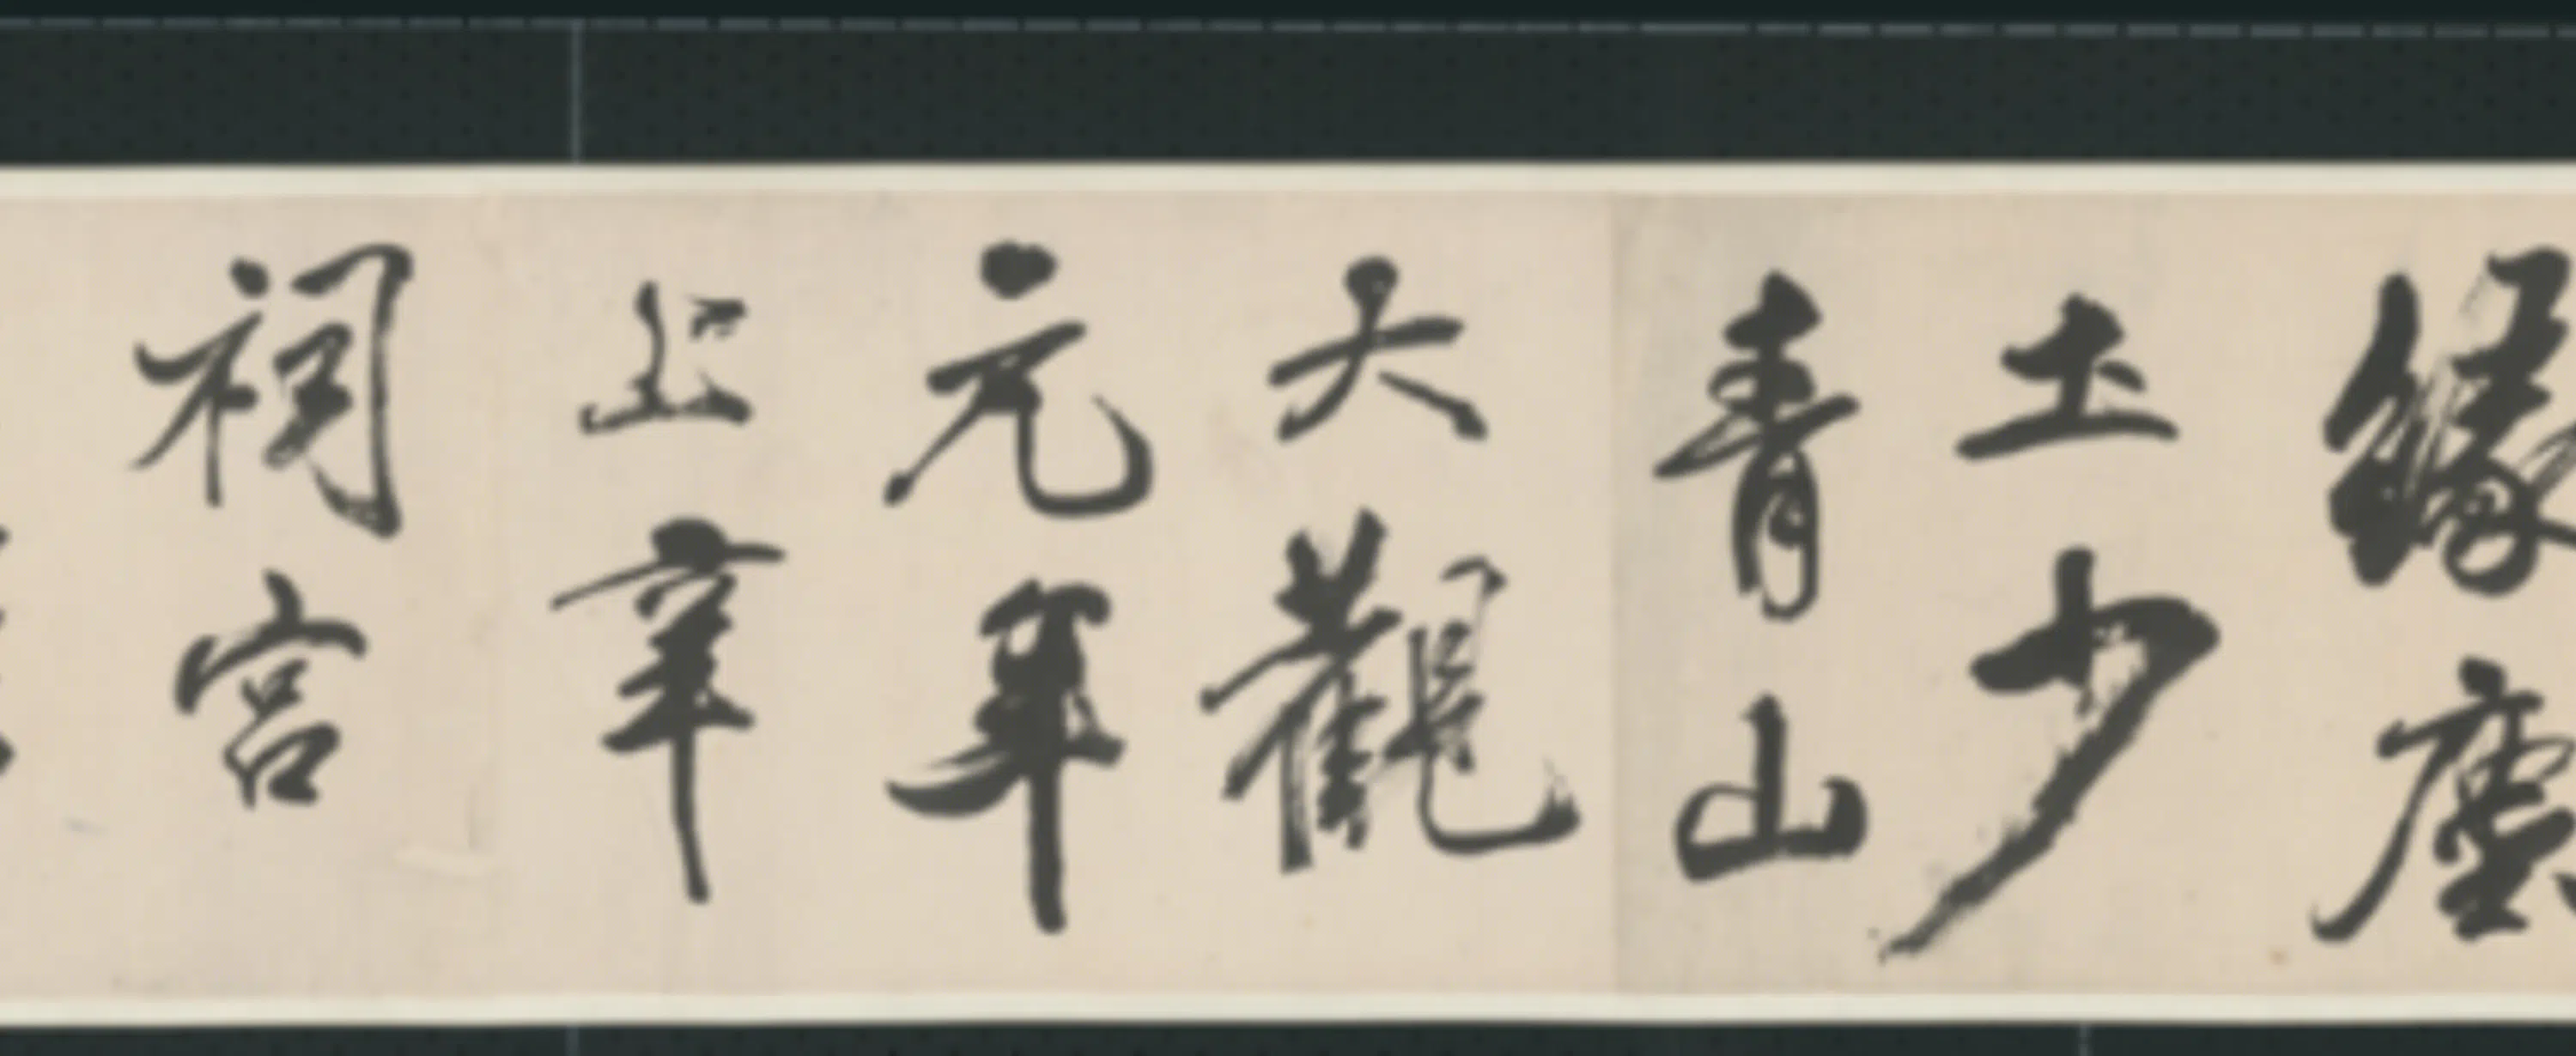 緣塵
土少
青山
大觀
元年
上幸
祠宮